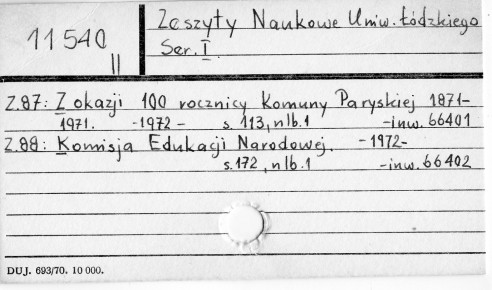 11540
II
Zeszyty Naukowe Uniw. Łódzkiego
Ser. I
Z.87: Z okazji 100 rocznicy Komuny Paryskiej 1871-
1971. -1972- s. 113, nlb. 1 -inw. 66401
Z.88: Komisja Edukacji Narodowej. -1972-
s. 172, nlb. 1 -inw. 66402
DUJ. 693/70. 10 000.